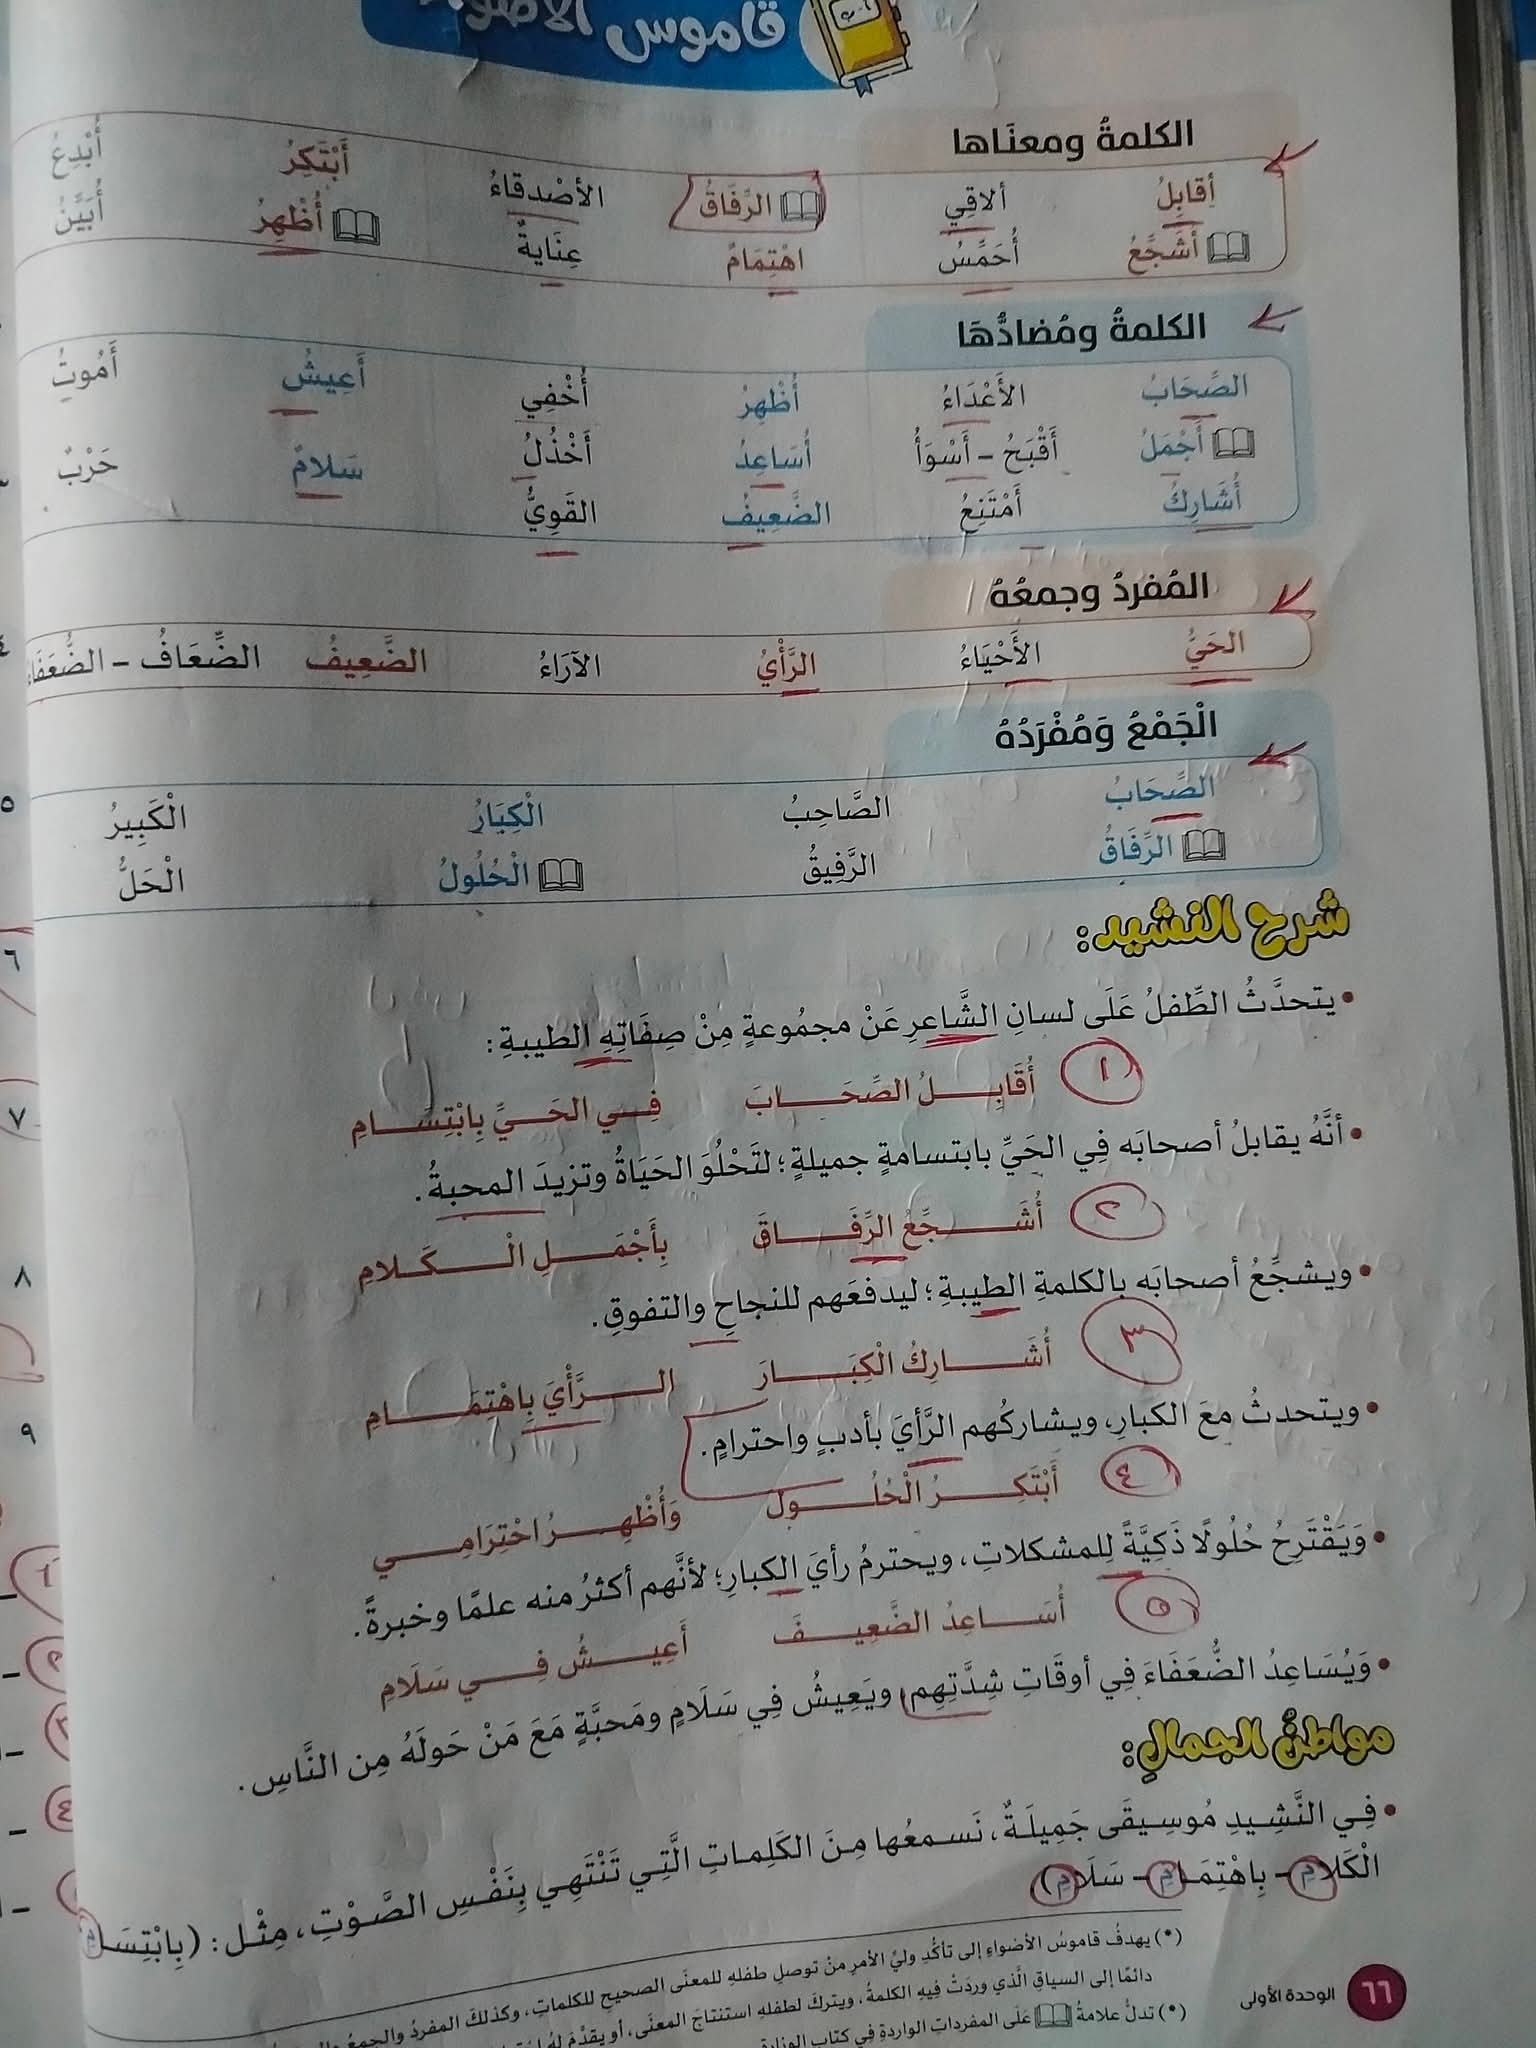 قاموس الأضواء
الكلمةُ ومعنَاها
أقابِلُ ألاقِي الرِّفَاقُ الأصْدقاءُ أَبْتَكِرُ أُبْدِعُ
أُشَجِّعُ أُحَمِّسُ اهْتِمَامٌ عِنَايةٌ أُظْهِرُ أُبَيِّنُ
الكلمةُ ومُضادُّهَا
الصِّحَابُ الأَعْدَاءُ أُظْهِرُ أُخْفِي أَعِيشُ أَمُوتُ
أَجْمَلُ أَقْبَحُ – أَسْوَأُ أُسَاعِدُ أَخْذُلُ سَلامٌ حَرْبٌ
أُشَارِكُ أَمْتَنِعُ الضَّعِيفُ القَوِيُّ
المُفردُ وجمعُهُ
الحَيُّ الأَحْيَاءُ الرَّأْيُ الآرَاءُ الضَّعِيفُ الضِّعَافُ – الضُّعَفَاءُ
الْجَمْعُ وَمُفْرَدُهُ
الصِّحَابُ الصَّاحِبُ الْكِبَارُ الْكَبِيرُ
الرِّفَاقُ الرَّفِيقُ الْحُلُولُ الْحَلُّ
شرح النشيد:
• يتحدَّثُ الطِّفلُ عَلَى لسانِ الشَّاعرِ عَنْ مجمُوعةٍ مِنْ صِفَاتِهِ الطيبةِ:
١ أُقَابِـــلُ الصِّحَـــابَ فِـي الحَـيِّ بِابْتِسَـــامِ
• أنَّهُ يقابلُ أصحابَه فِي الحَيِّ بابتسامةٍ جميلةٍ؛ لتَحْلُوَ الحَيَاةُ وتزيدَ المحبةُ.
٢ أُشَـــجِّعُ الرِّفَـــاقَ بِأَجْمَـــلِ الْـــكَـــلامِ
• ويشجِّعُ أصحابَه بالكلمةِ الطيبةِ؛ ليدفعَهم للنجاحِ والتفوقِ.
٣ أُشَـــارِكُ الْكِبَـــارَ الـــرَّأْيَ بِاهْتِمَـــامِ
• ويتحدثُ معَ الكبارِ، ويشاركُهم الرَّأيَ بأدبٍ واحترامٍ.
٤ أَبْتَكِـــرُ الْحُلُـــولَ وَأُظْهِـــرُ احْتِرَامِـــي
• وَيَقْتَرِحُ حُلُولًا ذَكِيَّةً لِلمشكلاتِ، ويحترمُ رأيَ الكبارِ؛ لأنَّهم أكثرُ منه علمًا وخبرةً.
٥ أُسَـــاعِدُ الضَّعِيـــفَ أَعِيـــشُ فِـــي سَلَامِ
• وَيُسَاعِدُ الضُّعَفَاءَ فِي أوقَاتِ شِدَّتِهِم، ويَعِيشُ فِي سَلَامٍ ومَحبَّةٍ مَعَ مَنْ حَولَهُ مِن النَّاسِ.
مواطنُ الجمالِ:
• فِي النَّشِيدِ مُوسِيقَى جَمِيلَةٌ، نَسمعُها مِنَ الكَلِماتِ الَّتِي تَنْتَهِي بِنَفْسِ الصَّوْتِ، مِثْل: (بِابْتِسَامِ
الْكَلامِ – بِاهْتِمَامِ – سَلَامِ)
(*) يهدفُ قاموسُ الأضواءِ إلى تأكُّدِ وليِّ الأمرِ منْ توصلِ طفلهِ للمعنَى الصحيحِ للكلماتِ، وكذلكَ المفردُ والجمعُ
دائمًا إلى السياقِ الَّذي وردَتْ فيهِ الكلمةُ، ويتركَ لطفلهِ استنتاجَ المعنَى، أو يقدِّمَ لهُ
(*) تدلُّ علامةُ عَلَى المفرداتِ الواردةِ فِي كتابِ الوزارةِ
٦٦ الوحدة الأولى
٥
٦
٧
٨
٩